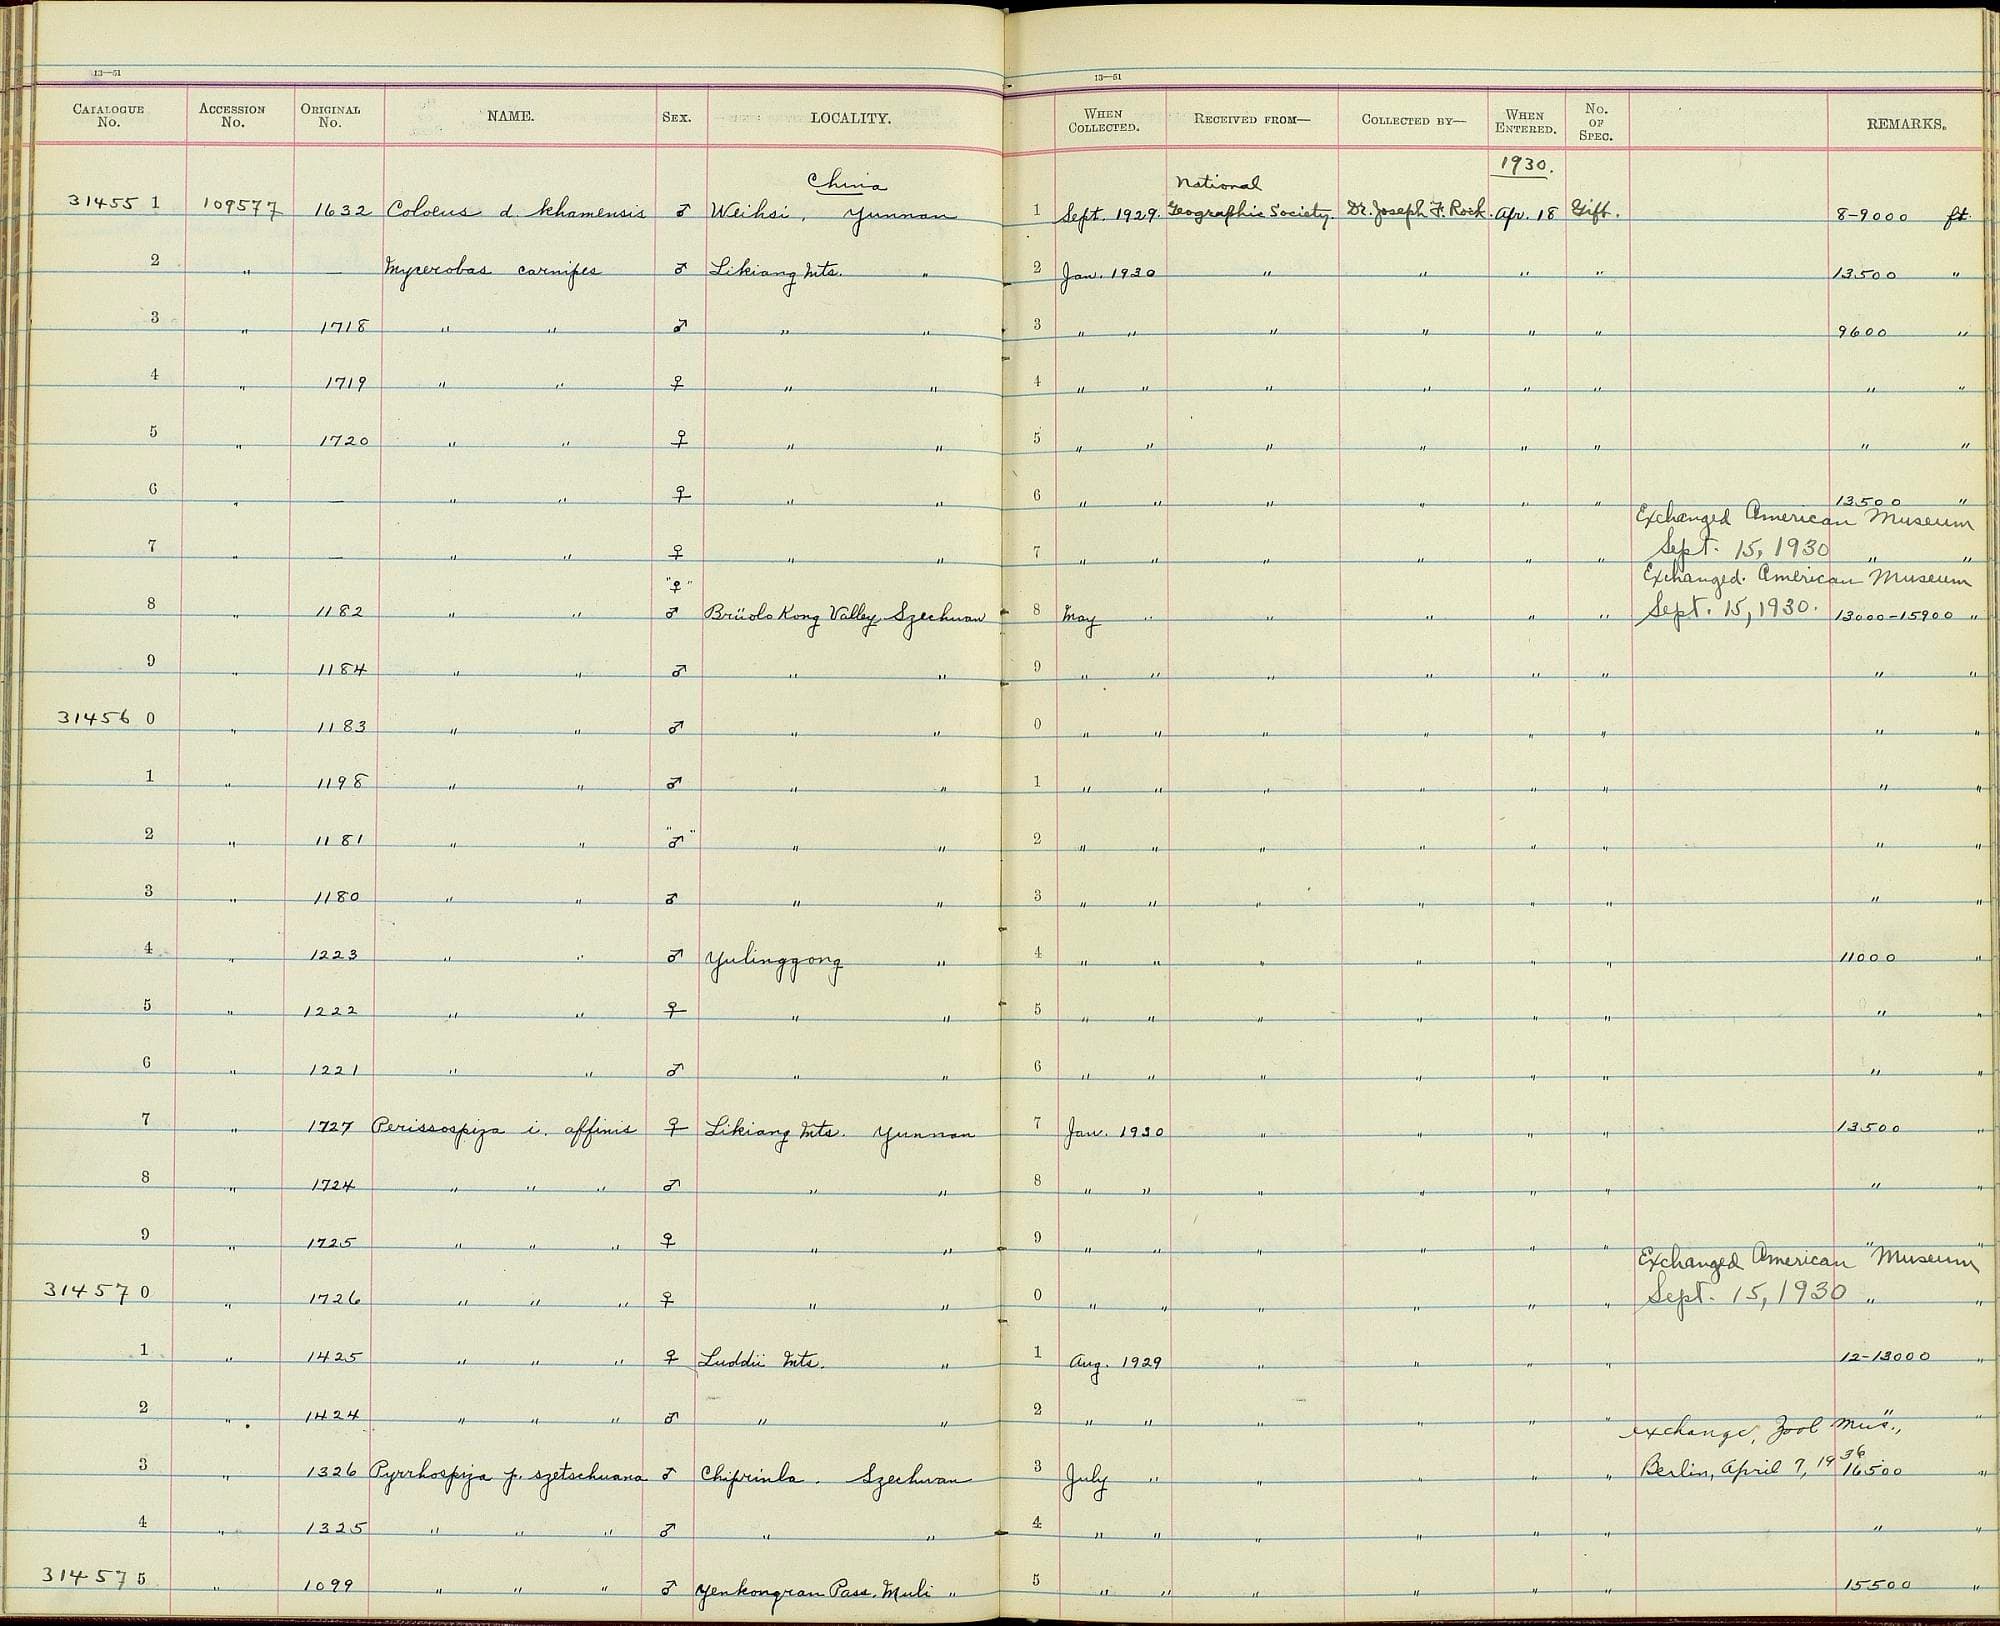 13—51 13—51
CATALOGUE No. ACCESSION No. ORIGINAL No. NAME. SEX. LOCALITY. WHEN COLLECTED. RECEIVED FROM— COLLECTED BY— WHEN ENTERED. No. OF SPEC. REMARKS.
1930.
China National
31455 1 109577 1632 Coloeus d. khamensis ♂ Weihsi, Yunnan 1 Sept. 1929. Geographic Society. Dr. Joseph F. Rock. Apr. 18 Gift. 8-9000 ft.
2 " — Mycerobas carnipes ♂ Likiang Mts. " 2 Jan. 1930 " " " " 13500 "
3 " 1718 " " ♂ " " 3 " " " " " " 9600 "
4 " 1719 " " ♀ " " 4 " " " " " " " "
5 " 1720 " " ♀ " " 5 " " " " " " " "
6 " — " " ♀ " " 6 " " " " " " 13500 "
Exchanged American Museum
7 " — " " ♀ " " 7 " " " " " " Sept. 15, 1930 " "
"♀" Exchanged. American Museum
8 " 1182 " " ♂ Brüolo Kong Valley. Szechuan 8 May " " " " " Sept. 15, 1930. 13000-15900 "
9 " 1184 " " ♂ " " 9 " " " " " " " "
31456 0 " 1183 " " ♂ " " 0 " " " " " " " "
1 " 1198 " " ♂ " " 1 " " " " " " " "
2 " 1181 " " "♂" " " 2 " " " " " " " "
3 " 1180 " " ♂ " " 3 " " " " " " " "
4 " 1223 " " ♂ Yulinggong " 4 " " " " " " 11000 "
5 " 1222 " " ♀ " " 5 " " " " " " " "
6 " 1221 " " ♂ " " 6 " " " " " " " "
7 " 1727 Perissospiza i. affinis ♀ Likiang Mts. Yunnan 7 Jan. 1930 " " " " 13500 "
8 " 1724 " " " ♂ " " 8 " " " " " " " "
9 " 1725 " " " ♀ " " 9 " " " " " " " "
Exchanged American Museum
31457 0 " 1726 " " " ♀ " " 0 " " " " " " Sept. 15, 1930 " "
1 " 1425 " " " ♀ Luddü Mts. " 1 Aug. 1929 " " " " 12-13000 "
2 " 1424 " " " ♂ " " 2 " " " " " " " "
exchange, Zool Mus.,
3 " 1326 Pyrrhospiza p. szetschuana ♂ Chiprinla. Szechwan 3 July " " " " " Berlin, April 7, 1936 16500 "
4 " 1325 " " " ♂ " " 4 " " " " " " " "
31457 5 " 1099 " " " ♂ Yenkongran Pass, Muli " 5 " " " " " " 15500 "